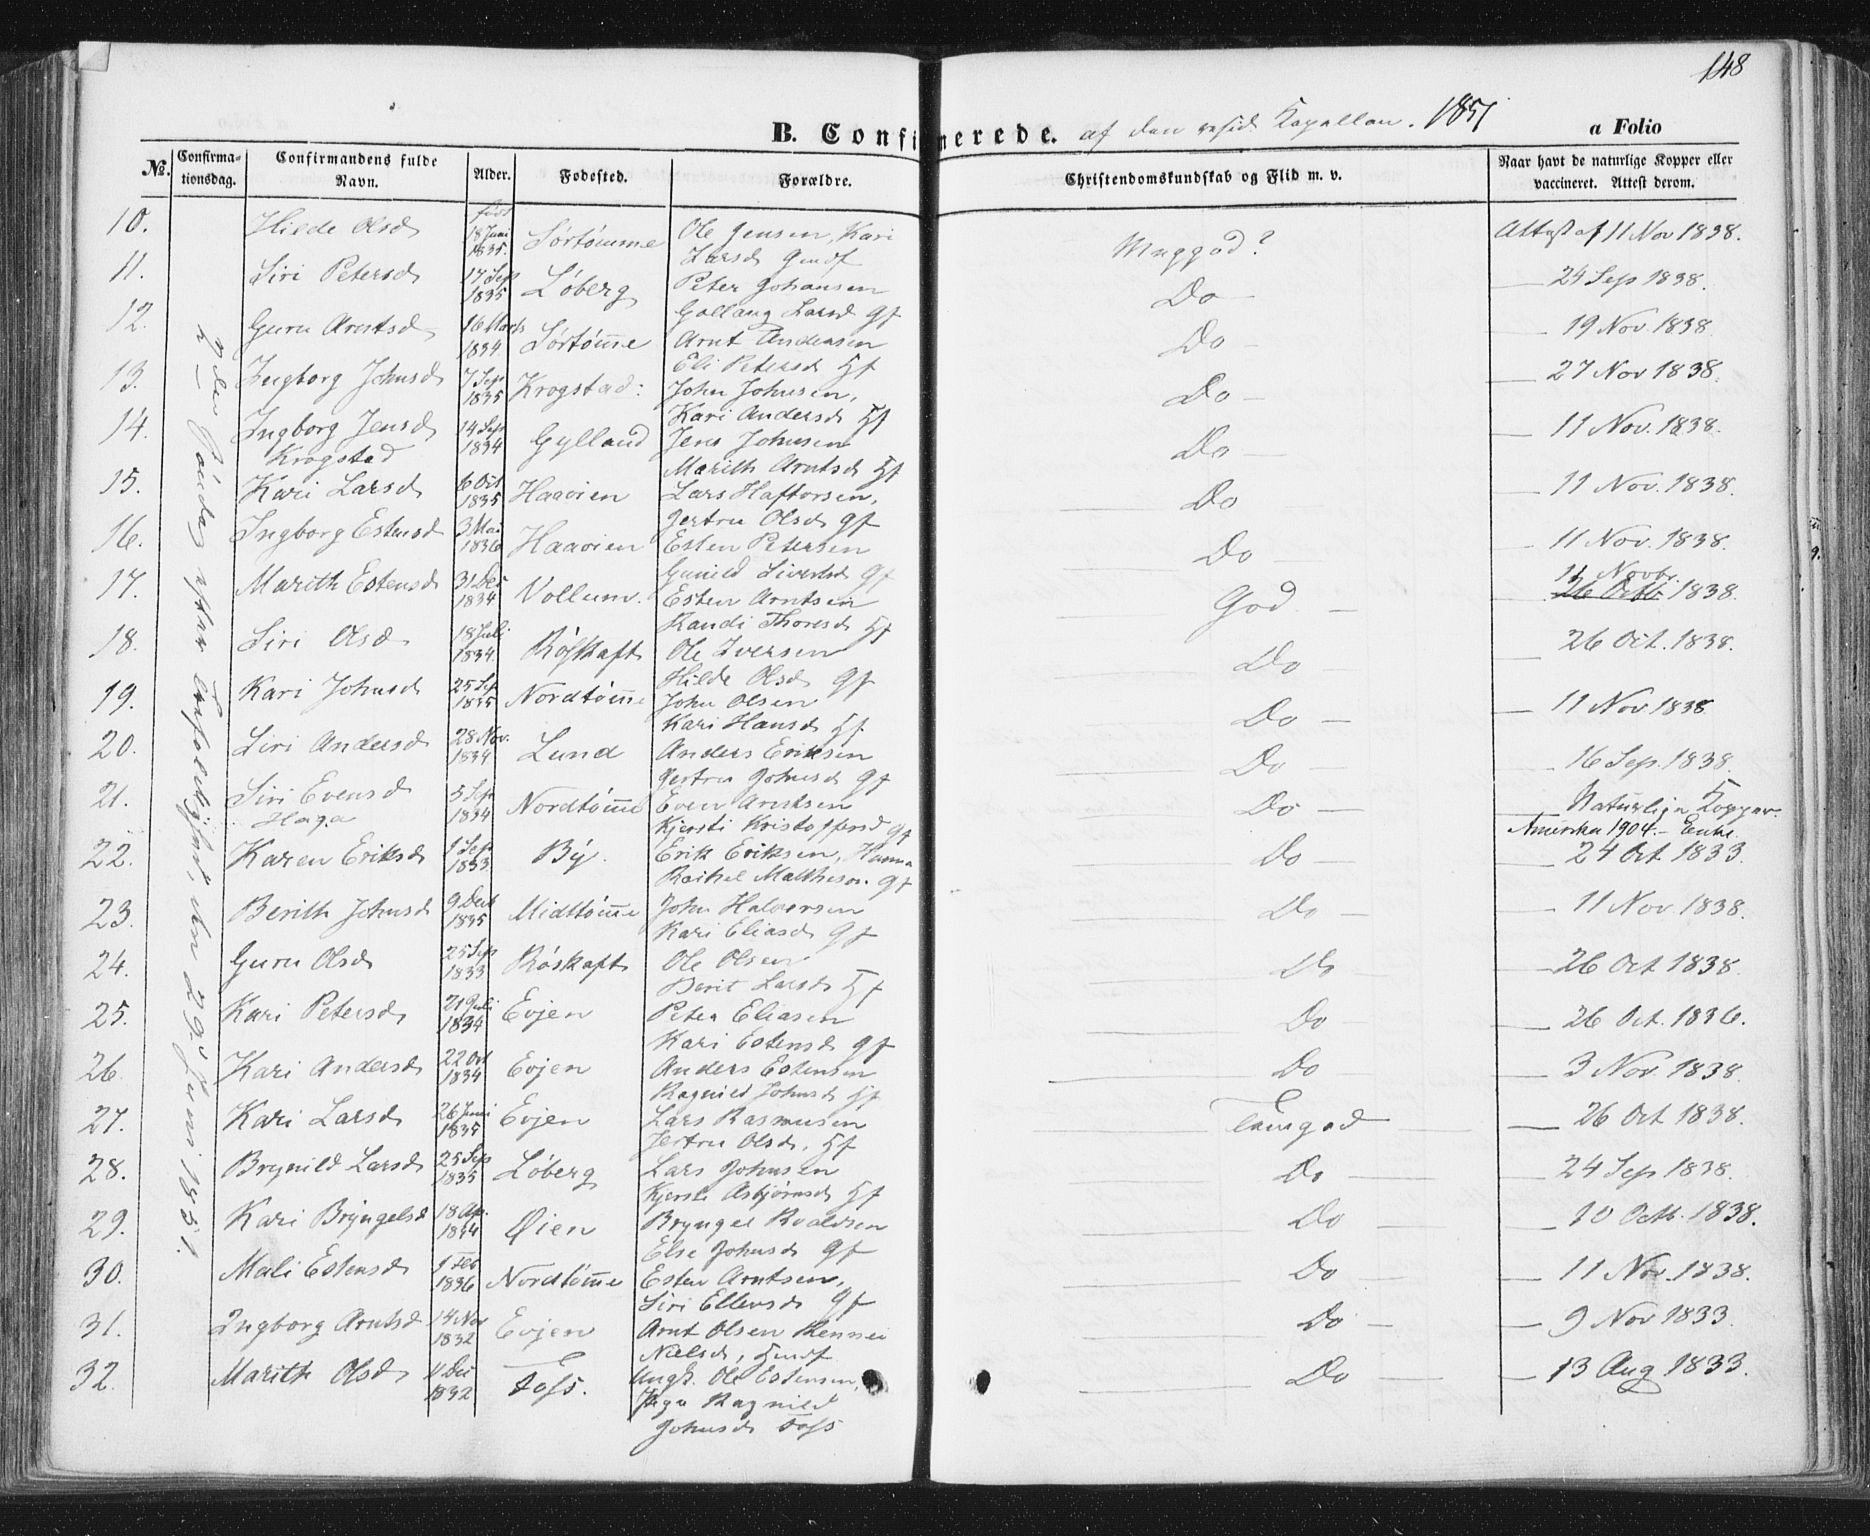 148
B. Confirmerede. af den resid Kapellan. 1851
a Folio
No. Confirmationsdag. Confirmandens fulde Navn. Alder. Fødested. Forældre. Christendomskundskab og Flid m. v. Naar havt de naturlige Kopper eller vaccineret. Attest derom.
2den Søndag efter Trefoldighed, den 29 Juni 1851.
10. Hilde Olsd født 18 Juni 1835. Sørtømme Ole Jensen, Kari Larsd Gmdf Meggod? Attest af 11 Nov 1838.
11. Siri Petersd 17 Sep 1835 Løberg Peter Johansen Gollaug Larsd Gf Do — 24 Sep 1838.
12. Guru Arntsd 16 Marts 1834. Sørtømme Arnt Andersen Eli Petersd Hf Do — 19 Nov. 1838
13. Ingborg Johnsd 7 Sep 1835 Krogstad: John Johnsen, Kari Andersd Hf Do — 27 Nov 1838.
14. Ingborg Jensd Krogstad 14 Sep 1834 Gylland Jens Johnsen Marith Arntsd Hf Do — 11 Nov. 1838.
15. Kari Larsd 6 Oct 1835 Haaøien Lars Haftorsen, Jertru Olsd Gf Do — 11 Nov. 1838.
16. Ingborg Estensd 3 Mai 1836 Haaøien Esten Petersen Gunild Sivertsd Gf Do — 11 Nov. 1838.
17. Marith Estensd 31 Dec 1834 Vollum. Esten Arntsen Randi Thoresd Hf God — 11 Novbr. 26 Octb. 1838.
18. Siri Olsd 18 Juli 1834. Røskaft Ole Iversen Hilde Olsd Gf Do — 26 Oct. 1838.
19. Kari Johnsd 25 Sep 1835 Nordtømme John Olsen Kari Hansd Hf Do — 11 Nov 1838
20. Siri Andersd 28 Nov. 1834 Lund Anders Eriksen Jertru Johnsd Gf Do — 16 Sep. 1838.
21. Siri Evensd Haga 5 Sep 1834 Nordtømme Even Arntsen Kjersti Kristoffersd Gf Do — Naturlige Kopper.
Amerika 1904.- Enke.
22. Karen Eriksd 1 Sep 1833 By. Erik Eriksen, Hanna Rachel Matheson. Gf Do — 24 Oct 1833.
23. Berith Johnsd 9 Dec 1835 Midttømme John Halvorsen Kari Eliasd Gf Do — 11 Nov 1838.
24. Guru Olsd 25 Sep 1833 Røskaft Ole Olsen Berit Larsd Hf Do — 26 Oct 1838.
25. Kari Petersd 21 Juli 1834 Evjen Peter Eliasen Kari Estensd Gf Do — 26 Oct. 1836.
26. Kari Andersd 22 Oct 1834 Evjen Anders Estensen Ragnild Johnsd Hf Do — 3 Nov. 1838.
27. Kari Larsd 26 Juni 1835 Evjen Lars Rasmusen Jertru Olsd, Hf Temgod — 26 Oct 1838.
28. Brynild Larsd 25 Sep 1835 Løberg Lars Johnsen Kjersti Asbjørnsd Hf Do — 24 Sep 1838.
29. Kari Bryngelsd 18 Ap. 1844 Øien Bryngel Roaldsen Else Johnsd Gf Do — 10 Octb. 1838.
30. Mali Estensd 1 Feb 1836 Nordtømme Esten Arntsen, Siri Ellensd Gf Do — 11 Nov. 1838.
31. Ingborg Arntsd 14 Nov 1832 Evjen Arnt Olsen Rennei Nielsd, Hmdf Do — 9 Nov 1833.
32. Marith Olsd 11 Dec 1832 Foss. Ungk. Ole Estensen, Pige Ragnild Johnsd Foss Do — 13 Aug 1833.